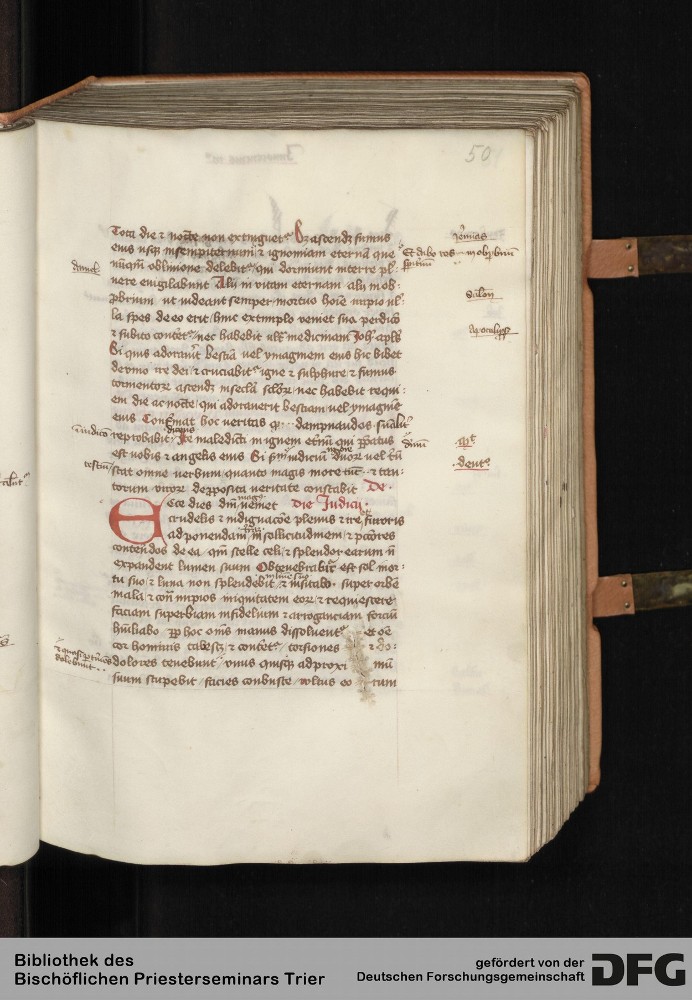 50
Tota die ⁊ nocte non extinguet᷑ Sꝫ ascendꝫ fumus
eius usqꝫ in sempiternum ⁊ ignomiam eternā que
nūqm̄ oblivione delebit᷑ qui dormiunt in terre pl̄
vere evigilabunt Alij in vitam eternam alij in ob⸗
ꝓbrium ut videant semper mortuo hoīe impio nl̄
la spes de eo erit hinc extimplo veniet sua perdicō
⁊ subito contet᷑ nec habebit ult᷑ medicinam Joh̄ apl̄s
Si quis adoravīt bestiā vel ymaginem eius hic bibet
de vino ire dei ⁊ cruciabit᷑ igne ⁊ sulphure ⁊ fumus
tormentoꝝ ascendꝫ in secla sc̄loꝝ nec habebit requi⸗
em die ac nocte qui adoraverit bestiam vel ymaginē
eius hoc veritas dampnandos
reprobabit dicens Ite maledicti in ignem et̄nū qui p̄patus
est vobis ⁊ angelis eius Si in iudiciū duoꝝ vel t̄ū
stat omne verbum quanto magis ⁊ tan⸗
torum viroꝝ deposita veritate constabit De
Ecce dies dn̄i magnꝰ veniet die Judicij
crudelis ⁊ indignacōe plenus ⁊ ire furoris
ad ponendam in solicitudinem ⁊ pc̄cōres
contēdos de ea qm̄ stelle celi ⁊ splendor earum n̄
expandent lumen suum Obtenebratꝰ est sol in or⸗
tu suo ⁊ luna non splendebit in lumine suo ⁊ visitabo super orbē
mala ⁊ cont̄ impios iniquitatem eoꝝ ⁊ requiescere
faciam superbiam infidelium ⁊ arroganciam forciū
hūiliabo ꝓpt̄ hoc om̄s manus dissolvent᷑ et oē
cor hominis tabescꝫ ⁊ contet᷑ torsiones ⁊ do⸗
dolores tenebunt unus quisqꝫ ad proxi mū
suum stupebit facies conbuste voltus eo rum
daniel
Jeremias
Et dabo vos in obprobriū
sempiternū
Salom
Apocalipß
in iudicio
testiū
⁊ quasi pt̄uriēs
dolebunt
Bibliothek des
Bischöflichen Priesterseminars Trier
gefördert von der
Deutschen Forschungsgemeinschaft
DFG